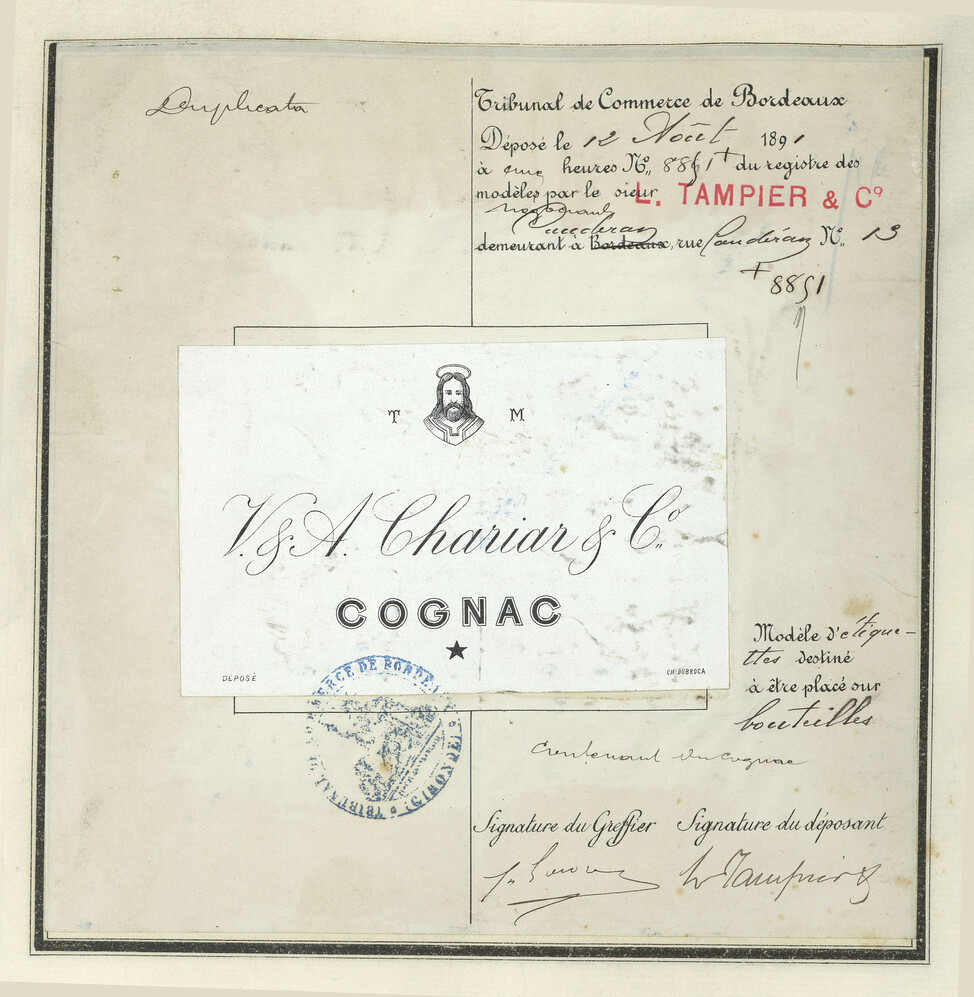 Duplicata
Tribunal de Commerce de Bordeaux
Déposé le 12 Août 1891
à heures Nº 8851 + du registre des
modèles par le sieur L. TAMPIER & Cº
négociant
Caudéran
demeurant à Bordeaux, rue Caudéran Nº 13
+ 8851
T M
V. & A. Chariar & Cº
COGNAC
★
DÉPOSÉ
CH. DUBROCA
TRIBUNAL DE COMMERCE DE BORDEAUX
(GIRONDE)
Modèle d'étique-
ttes destiné
à être placé sur
bouteilles
contenant du cognac
Signature du Greffier Signature du déposant
L Tampier &